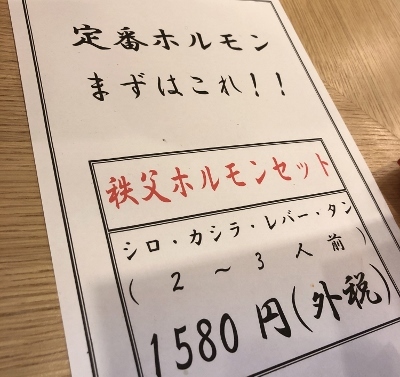 定番ホルモン
まずはこれ!!
秩父ホルモンセット
シロ・カシラ・レバー・タン
(2～3人前)
1580円(外税)